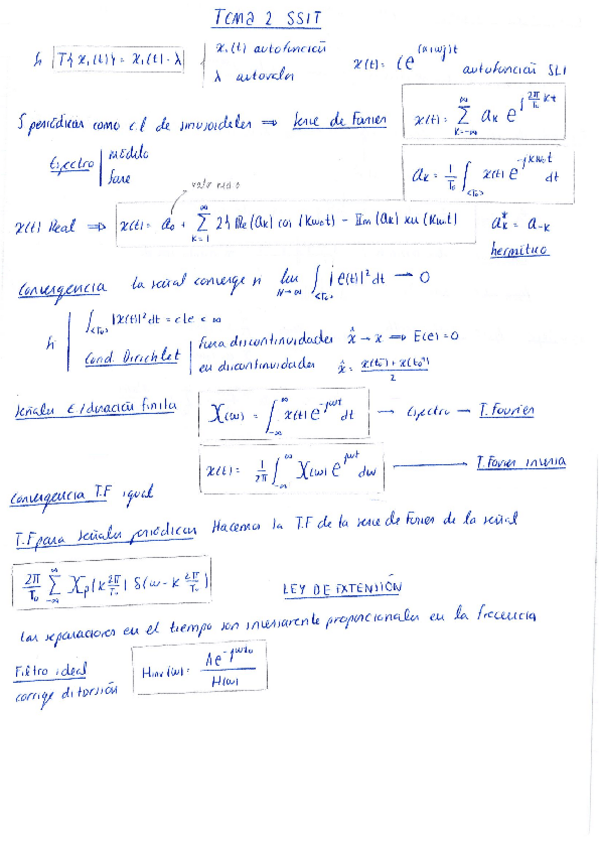 TEMA 2 SSIT
Si T{x₁(t)} = x₁(t)·λ { x₁(t) autofunción
λ autovalor
x(t) = Ce^{(α+ωj)t} autofunción SLI
S periódicas como c.l de sinusoidales ⇒ Serie de Fourier
x(t) = Σ_{k=-∞}^{∞} a_k e^{j 2π/T₀ kt}
Espectro | módulo
fase
a_k = 1/T₀ ∫_{<T₀>} x(t) e^{-jkω₀t} dt
valor medio
x(t) Real ⇒ x(t) = a₀ + Σ_{k=1}^{∞} 2{Re(a_k) cos(kω₀t) - Im(a_k) sen(kω₀t)
a_k^* = a_{-k}
hermítico
Convergencia la señal converge si lim_{N→∞} ∫_{<T₀>} |e(t)|² dt → 0
Si | ∫_{<T₀>} |x(t)|² dt = cte < ∞
Cond. Dirichlet | fuera discontinuidades x̂ → x ⇒ E(e) = 0
en discontinuidades x̂ = x(t₀⁻) + x(t₀⁺) / 2
Señales E/duración finita
X(ω) = ∫_{-∞}^{∞} x(t) e^{-jωt} dt → Espectro → T. Fourier
x(t) = 1/2π ∫_{-∞}^{∞} X(ω) e^{jωt} dω → T. Fourier inversa
Convergencia T.F igual
T.F para señales periódicas Hacemos la T.F de la serie de Fourier de la señal
2π/T₀ Σ_{-∞}^{∞} X_p(k 2π/T₀) δ(ω - k 2π/T₀)
LEY DE EXTENSIÓN
Las separaciones en el tiempo son inversamente proporcionales en la frecuencia
Filtro ideal
corrige distorsión
H_inv(ω) = Ae^{-jωt₀} / H(ω)